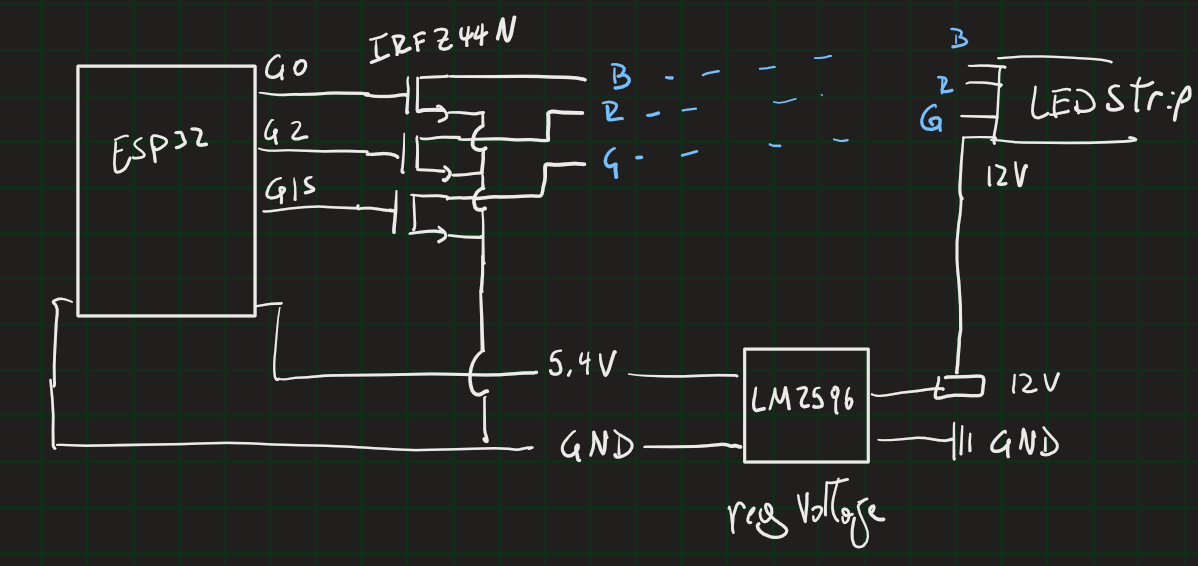 IRFZ44N
G0
ESP32
G2
G15
B
R
G
B
R
G
LED Strip
12V
5,4V
LM2596
12V
GND
GND
reg Voltage